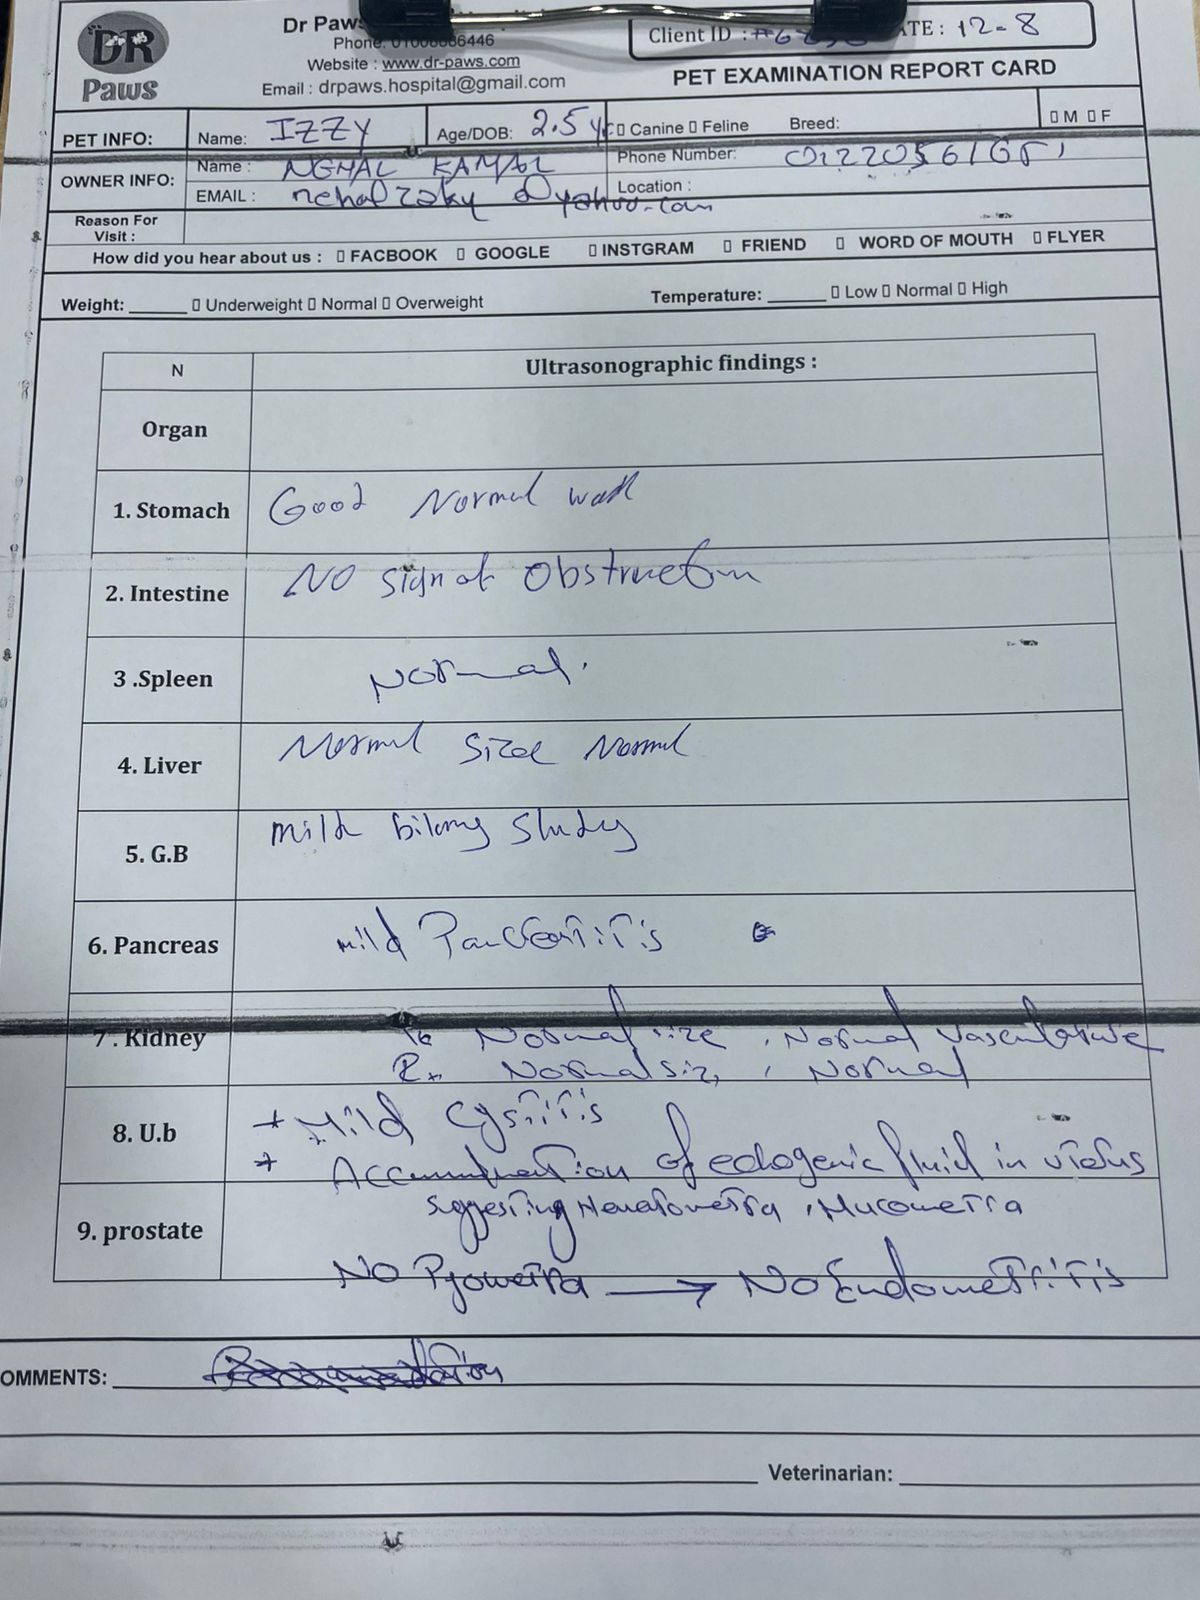 DR
Paws
Dr Paws
Phone: 01008666446
Website : www.dr-paws.com
Email : drpaws.hospital@gmail.com
Client ID : ATE : 12-8
PET EXAMINATION REPORT CARD
PET INFO: Name: IZZY Age/DOB: 2.5 yr ▯ Canine ▯ Feline Breed: ▯ M ▯ F
OWNER INFO: Name : KAMAL Phone Number:
EMAIL : nehalzaky @yahoo.com Location :
Reason For
Visit :
How did you hear about us : ▯ FACBOOK ▯ GOOGLE ▯ INSTGRAM ▯ FRIEND ▯ WORD OF MOUTH ▯ FLYER
Weight: ______ ▯ Underweight ▯ Normal ▯ Overweight Temperature: ______ ▯ Low ▯ Normal ▯ High
N Ultrasonographic findings :
Organ
1. Stomach Good Normal wall
2. Intestine NO sign of Obstruction
3 .Spleen Normal.
4. Liver Normal Size Normal
5. G.B mild biliary sludg
6. Pancreas mild Pancreatitis
7. Kidney Normal size , Normal Vasculature
Normal siz, , Normal
8. U.b * Mild Cystitis
* Accumulation of echogenic fluid in uterus
9. prostate suggesting Hematometra , Mucometra
NO Pyometra → NO Endometritis
OMMENTS:
Veterinarian: